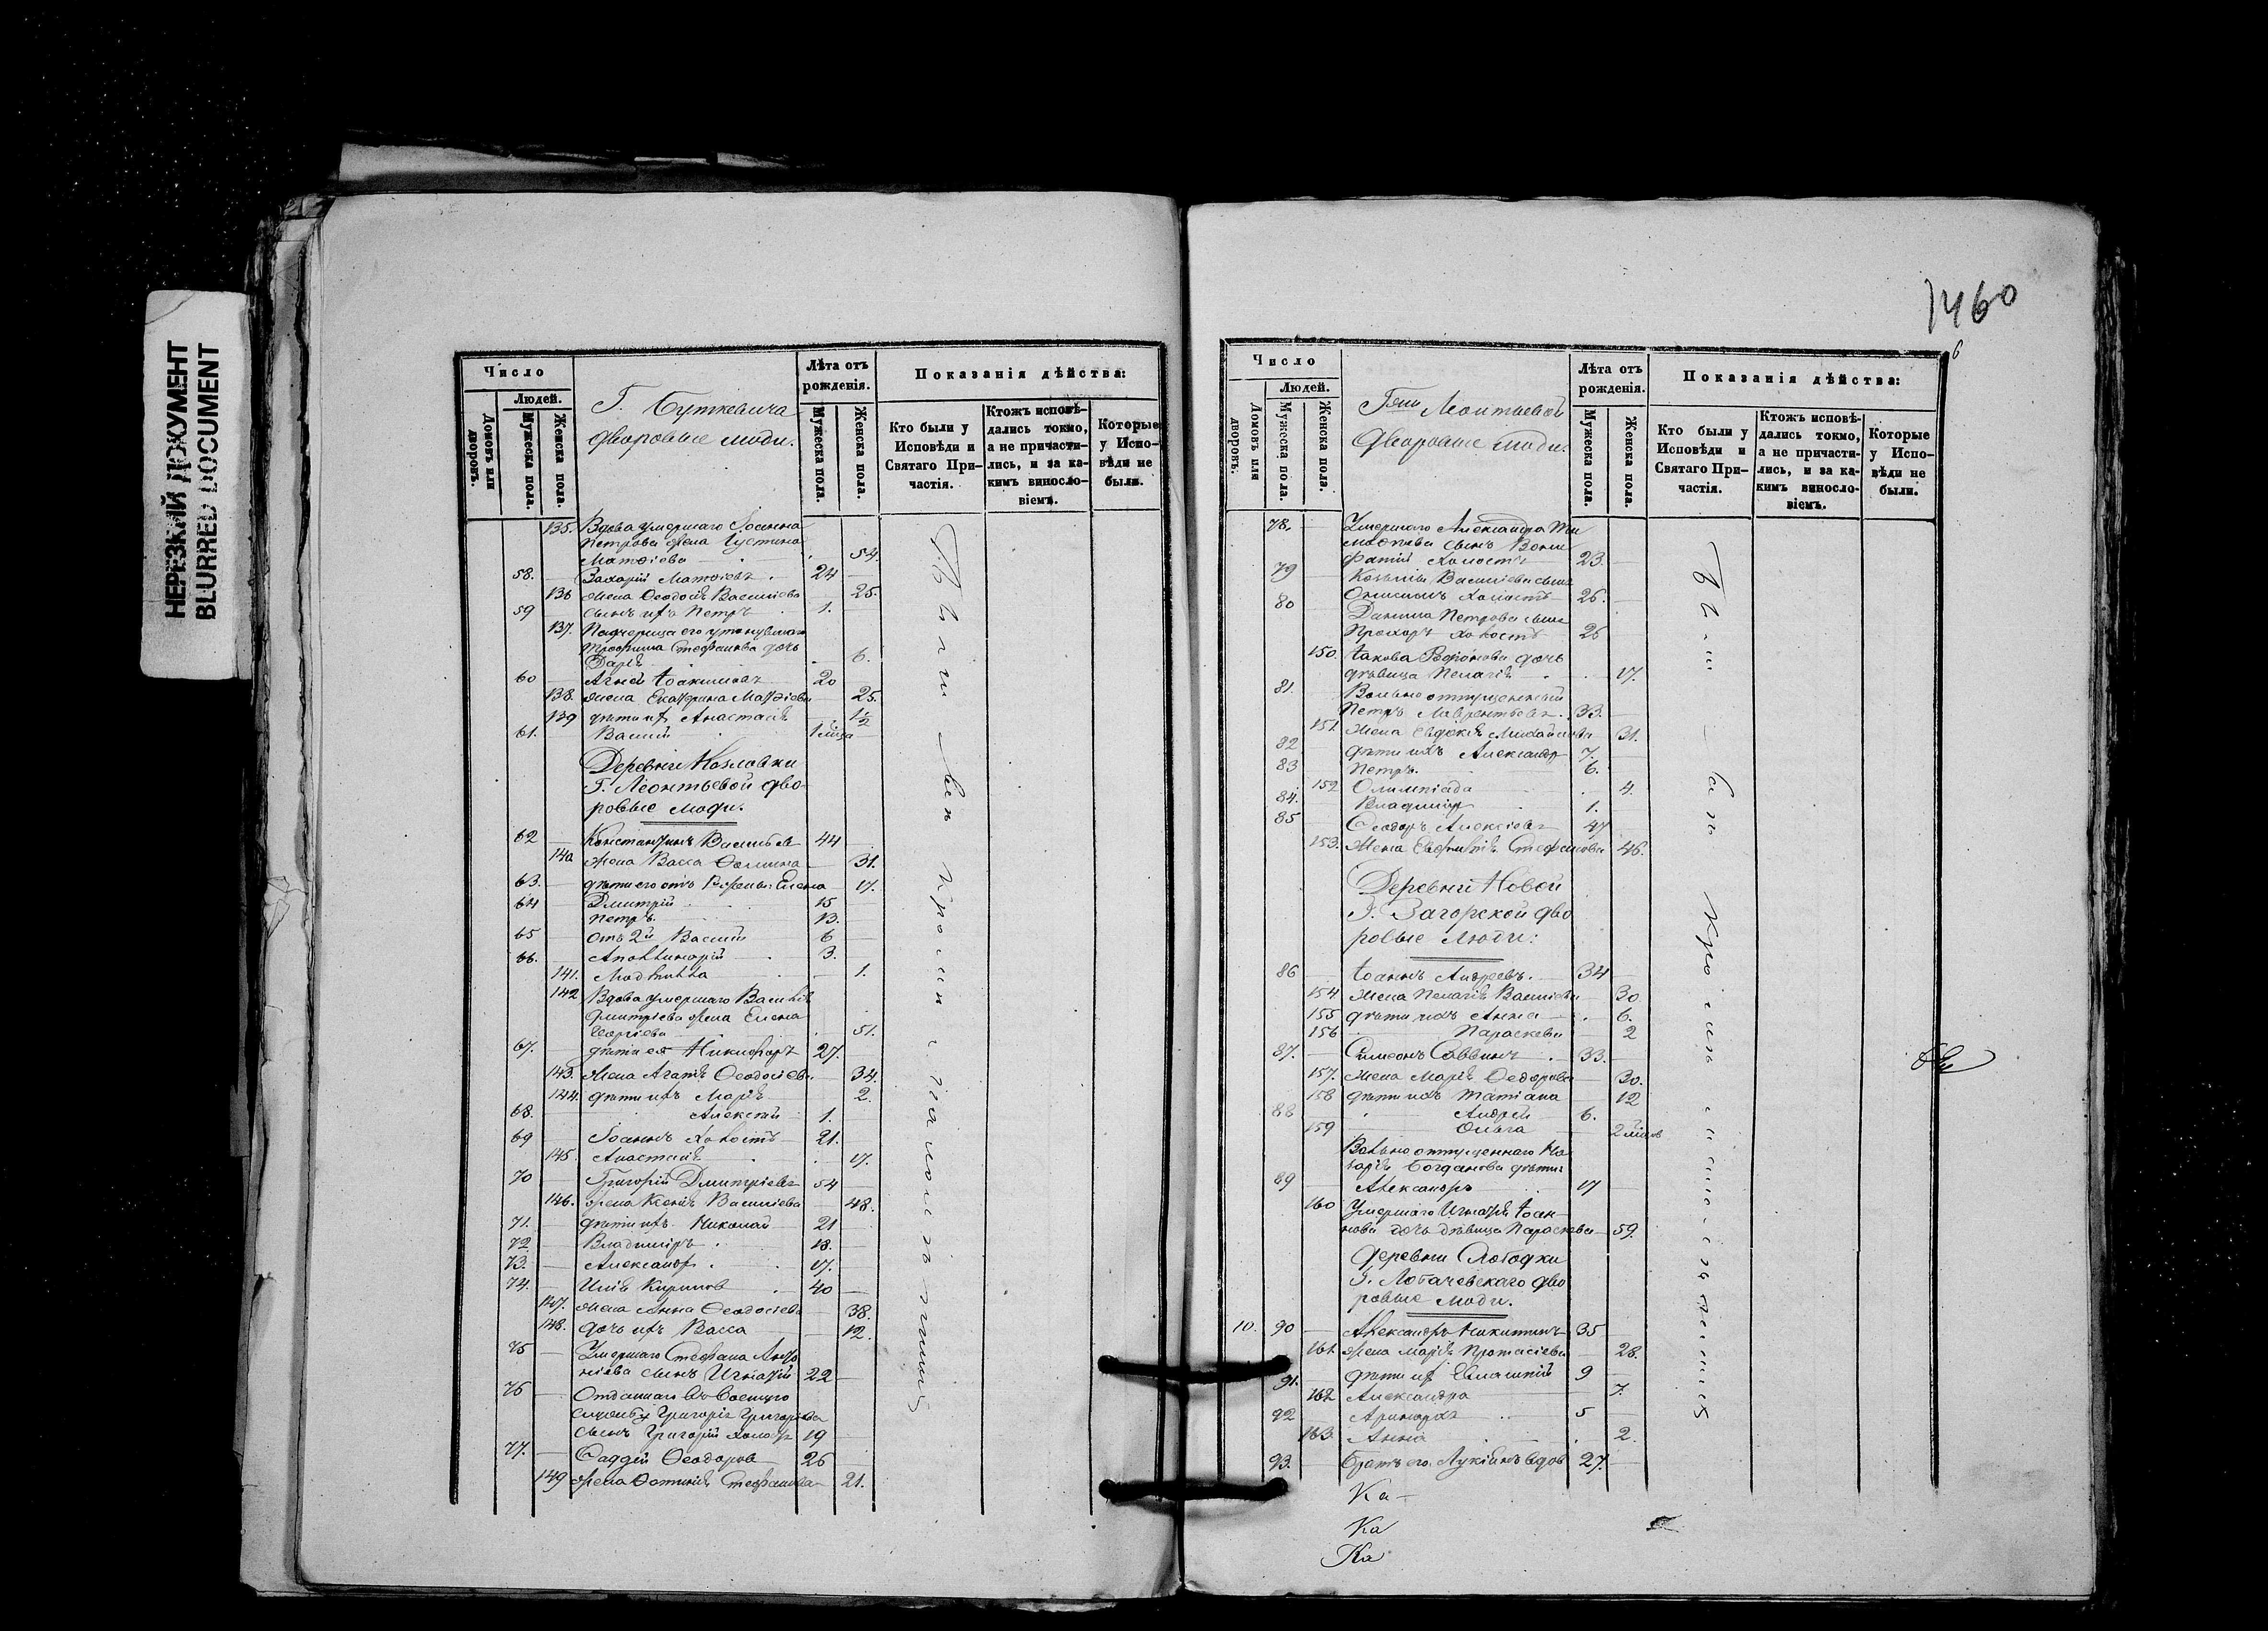 НЕРЕЗКИЙ ДОКУМЕНТ
BLURRED DOCUMENT
Число
Людей.
Домовъ или дворовъ.
Мужеска пола.
Женска пола.
Г. Буткевича
дворовые люди.
Лѣта отъ рожденія.
Мужеска пола.
Женска пола.
Показанія дѣйства:
Кто были у Исповѣди и Святаго Причастія.
Ктожъ исповѣдались токмо, а не причастились, и за какимъ винословіемъ.
Которые у Исповѣди не были.
135. Вдова умершаго Іоанна
Петрова жена Іустина
Матѳіева 54.
58. Захарій Матѳіевъ 24
136 жена Ѳеодосія Василіева 25.
59 сынъ ихъ Петръ 1.
137. Падчерица его
Трофима Стефанова дочь
Дарія 6.
60 Агъей Іоакимовъ 20
138. жена Екатерина Матѳіева 25.
139 дѣти ихъ Анастасія 1½
61. Василій 1
Деревни Козловки
Г. Леонтьевой дво-
ровые люди.
62 Константинъ Васильевъ 44
140 жена Васса Ѳомина 31.
63. дѣти его отъ Елена 17.
64 Дмитрій 15
Петръ 13.
65 отъ 2й Василій 6
66. Аполлинарій 3.
141. 1.
142 Вдова умершаго Василія
Дмитріева жена Елена
Георгіева 51.
67. дѣти ея Никифоръ 27.
143. жена Агапія Ѳеодосіева 34.
144. дѣти ихъ Марія 2.
68. Алексѣй 1.
69 Іоаннъ холостъ 21.
145. Анастасія 17.
70 Григорій Дмитріевъ 54
146. жена Ксенія Василіева 48.
71. дѣти ихъ Николай 21
72 Владиміръ 18.
73. Александръ 17.
74. Илія Кириловъ 40
147. жена Анна Ѳеодосіева 38.
148. дочь ихъ Васса 12.
75 Умершаго Стефана
сынъ Игнатій 22
76 Отданнаго въ военную
службу Григорія Григорьева
сынъ Григорій холостъ 19
77. Фаддей Ѳеодоровъ 26
149 жена Стефанова 21.
1460
6
Число
Людей.
Домовъ или дворовъ.
Мужеска пола.
Женска пола.
Гжи Леонтьевой
дворовые люди.
Лѣта отъ рожденія.
Мужеска пола.
Женска пола.
Показанія дѣйства:
Кто были у Исповѣди и Святаго Причастія.
Ктожъ исповѣдались токмо, а не причастились, и за какимъ винословіемъ.
Которые у Исповѣди не были.
78. Умершаго Александра Ти
моѳѣева сынъ Вони
фатій холостъ 23.
79 Козьмы Василіева сынъ
Онисимъ холостъ 26.
80 Даніила Петрова сынъ
Прохоръ холостъ 26
150. Іакова Родіонова дочь
дѣвица Пелагія 17.
81. Вольноотпущенный
Петръ Лаврентьевъ 33.
151 жена Евдокія Михайлова 31.
82. дѣти ихъ Александръ 7.
83 Петръ. 6.
152 Олимпіада 4.
84. Владиміръ 1.
85 Ѳеодоръ Алексіевъ 47
153. жена Стефанова 46.
Деревни Новой
Г. Загорской дво
ровые люди:
86 Іоаннъ Андреевъ. 34
154 жена Пелагія Василіева 30
155 дѣти ихъ Анна 6.
156 Параскева 2
87. Симеонъ Саввинъ 33.
157. жена Марія Ѳедорова 30.
158 дѣти ихъ Татіана 12
88 Андрей 6.
159 Ольга 2
Вольноотпущеннаго
Богданова дѣти
89 Александръ 17
160 Умершаго Игнатія Іоан-
нова дочь дѣвица Параскева 59.
Деревни Слободки
Г. Лобачевскаго дво
ровые люди.
10. 90 Александръ Никитинъ 35
161. жена Марія Протасіева 28.
91. дѣти ихъ 9
162 Александра 7.
92 5
163. Анна 2.
93. Братъ его 27.
Ка-
Ка
Ка